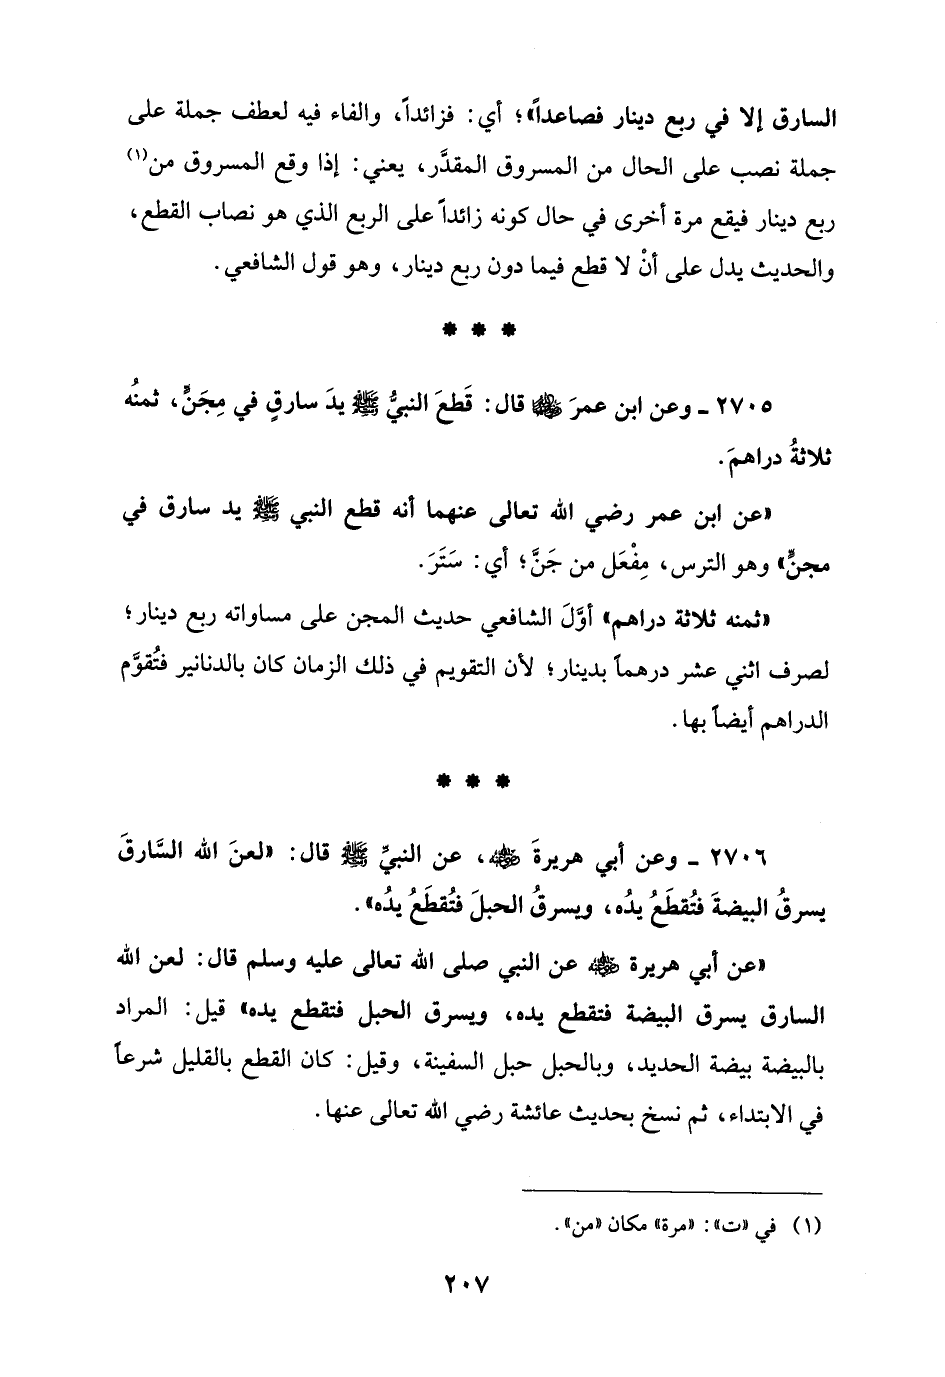 السارق إلا في ربع دينار فصاعداً»؛ أي: فزائداً، والفاء فيه لعطف جملة على
جملة نصب على الحال من المسروق المقدَّر، يعني: إذا وقع المسروق من(١)
ربع دينار فيقع مرة أخرى في حال كونه زائداً على الربع الذي هو نصاب القطع،
والحديث يدل على أنْ لا قطع فيما دون ربع دينار، وهو قول الشافعي.
* * *
٢٧٠٥ ـ وعن ابن عمرَ رضي الله عنهما قال: قَطعَ النبيُّ ﷺ يدَ سارقٍ في مِجَنٍّ، ثمنُه
ثلاثةُ دراهمَ.
«عن ابن عمر رضي الله تعالى عنهما أنه قطع النبي ﷺ يد سارق في
مجنٍّ» وهو الترس، مِفْعَل من جَنَّ؛ أي: سَتَرَ.
«ثمنه ثلاثة دراهم» أوَّلَ الشافعي حديث المجن على مساواته ربع دينار؛
لصرف اثني عشر درهماً بدينار؛ لأن التقويم في ذلك الزمان كان بالدنانير فتُقوَّم
الدراهم أيضاً بها.
* * *
٢٧٠٦ ـ وعن أبي هريرةَ رضي الله عنه، عن النبيِّ ﷺ قال: «لعنَ الله السَّارقَ
يسرقُ البيضةَ فتُقطَعُ يدُه، ويسرقُ الحبلَ فتُقطَعُ يدُه».
«عن أبي هريرة رضي الله عنه عن النبي صلى الله تعالى عليه وسلم قال: لعن الله
السارق يسرق البيضة فتقطع يده، ويسرق الحبل فتقطع يده» قيل: المراد
بالبيضة بيضة الحديد، وبالحبل حبل السفينة، وقيل: كان القطع بالقليل شرعاً
في الابتداء، ثم نسخ بحديث عائشة رضي الله تعالى عنها.
(١) في «ت»: «مرة» مكان «من».
٢٠٧